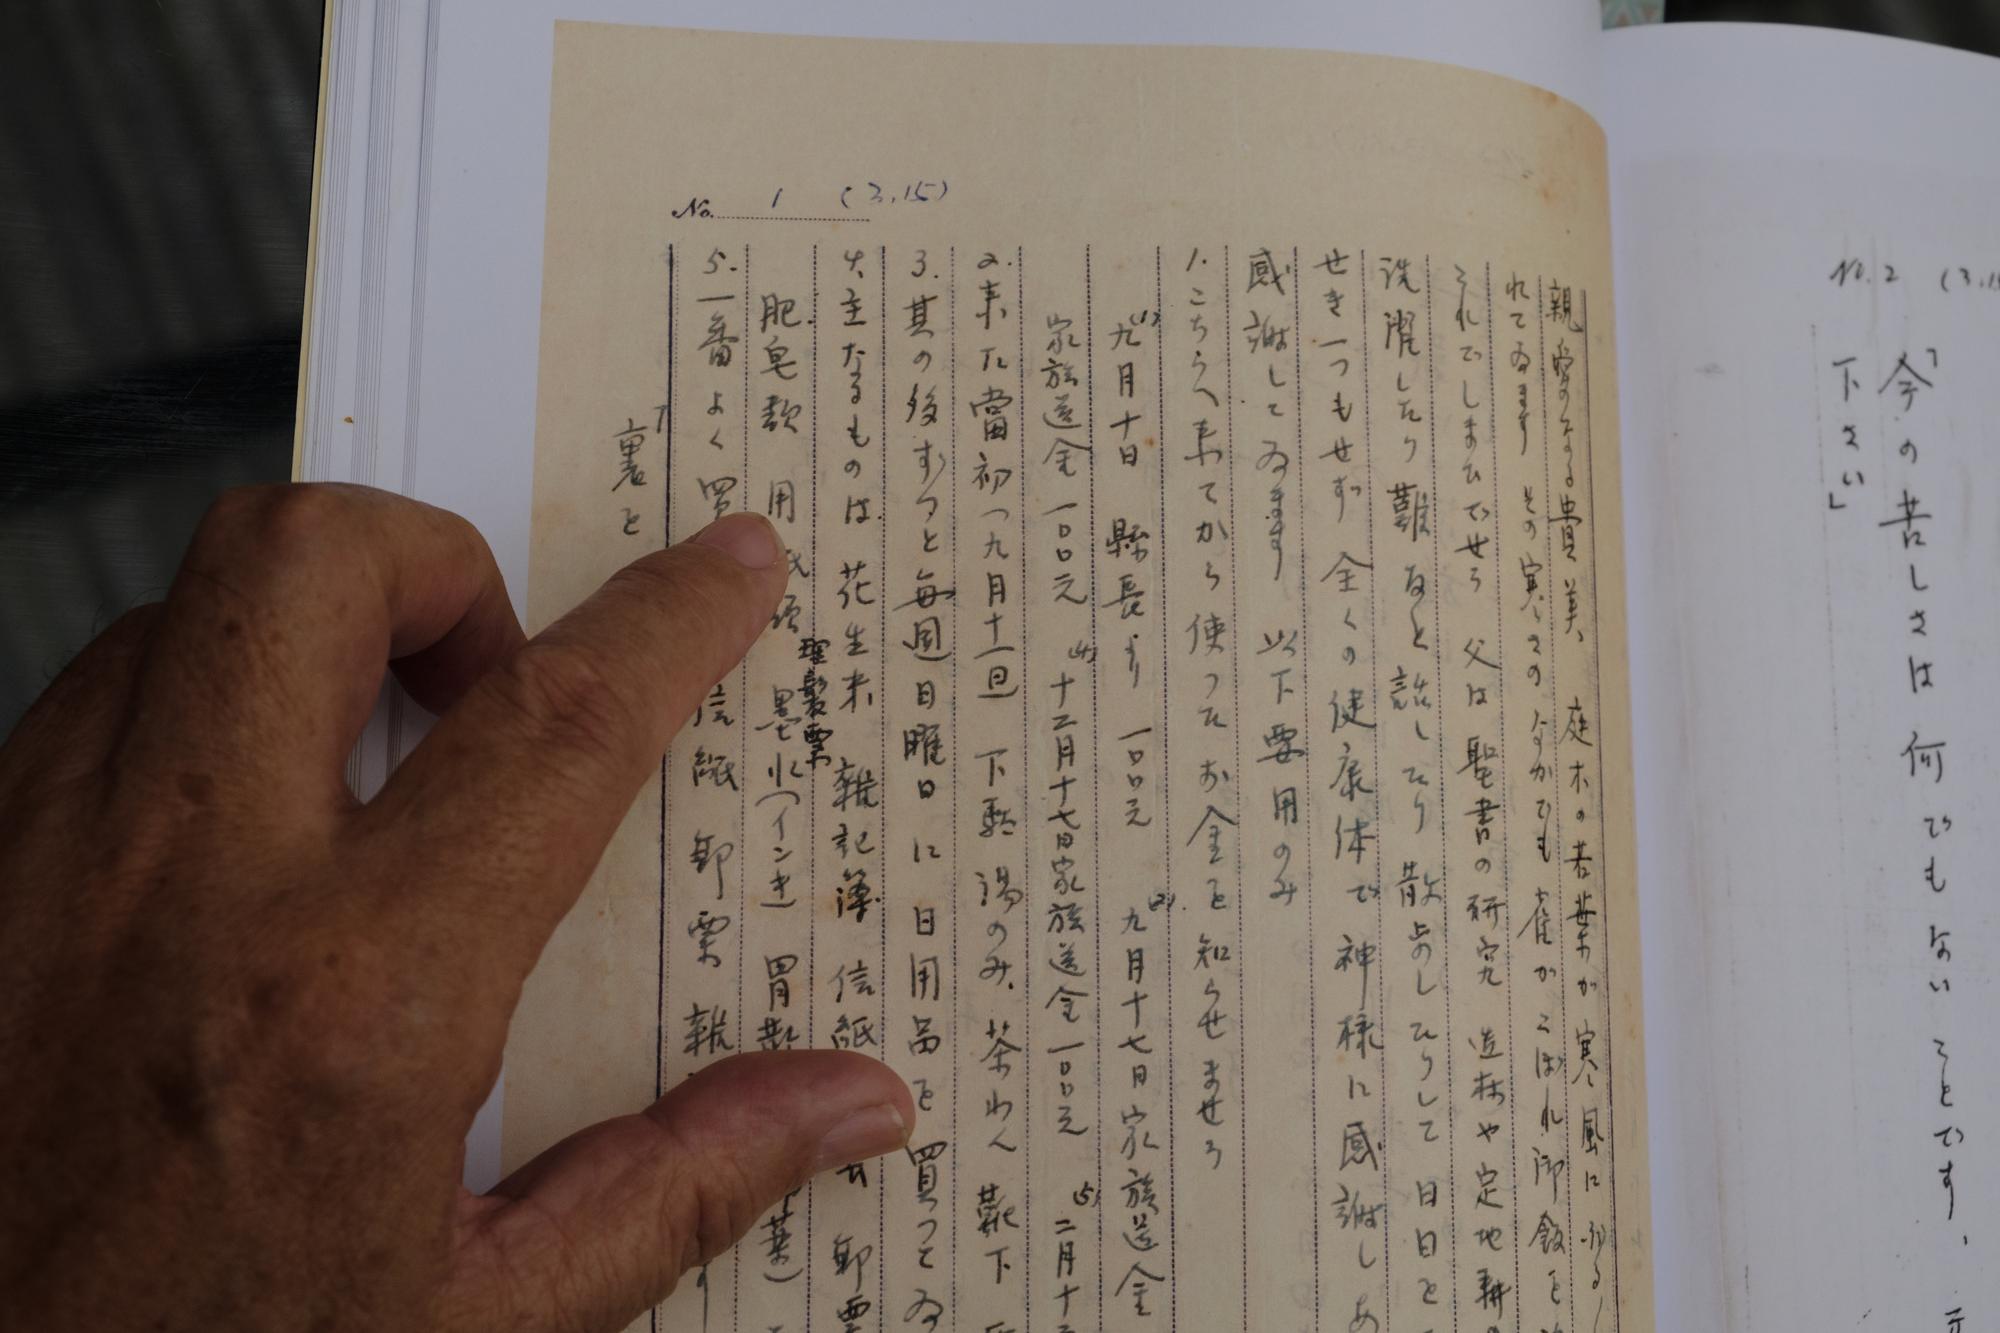 No. 1 (3,15)
親愛なる貴美、 庭木の若葉が寒風にふる
れてゐます その寒さのなかでも雀がこぼれ御飯を
それでしまひでせう 父は聖書の研究 造林や定地耕の
洗濯したり 難なと話したり 散歩したりして 日日と
せき一つもせず 全くの健康体で 神様に感謝し あ
感謝してゐます 以下要用のみ
1. こちらへ来てから使ったお金を知らせませう
(1) 九月十日 縣長より 一〇〇元 (2). 九月十七日家族送金
家族送金一〇〇元 (4) 十二月十七日家族送金一〇〇元 (5) 二月十二
2. 来た當初(九月十一日) 下駄 湯のみ、茶わん 靴下
3. 其の後ずっと毎週日曜日に日用品を買ってゐ
4. 主なるものは 花生米 雜記簿 信紙 郵票
理髪票
肥皂 用 紙 墨水(インキ) 胃散 葉)
5. 一番よく買 信紙 郵票 雜
「裏と
No. 2 (3,15
「今の苦しさは何でもないことです、
下さい」